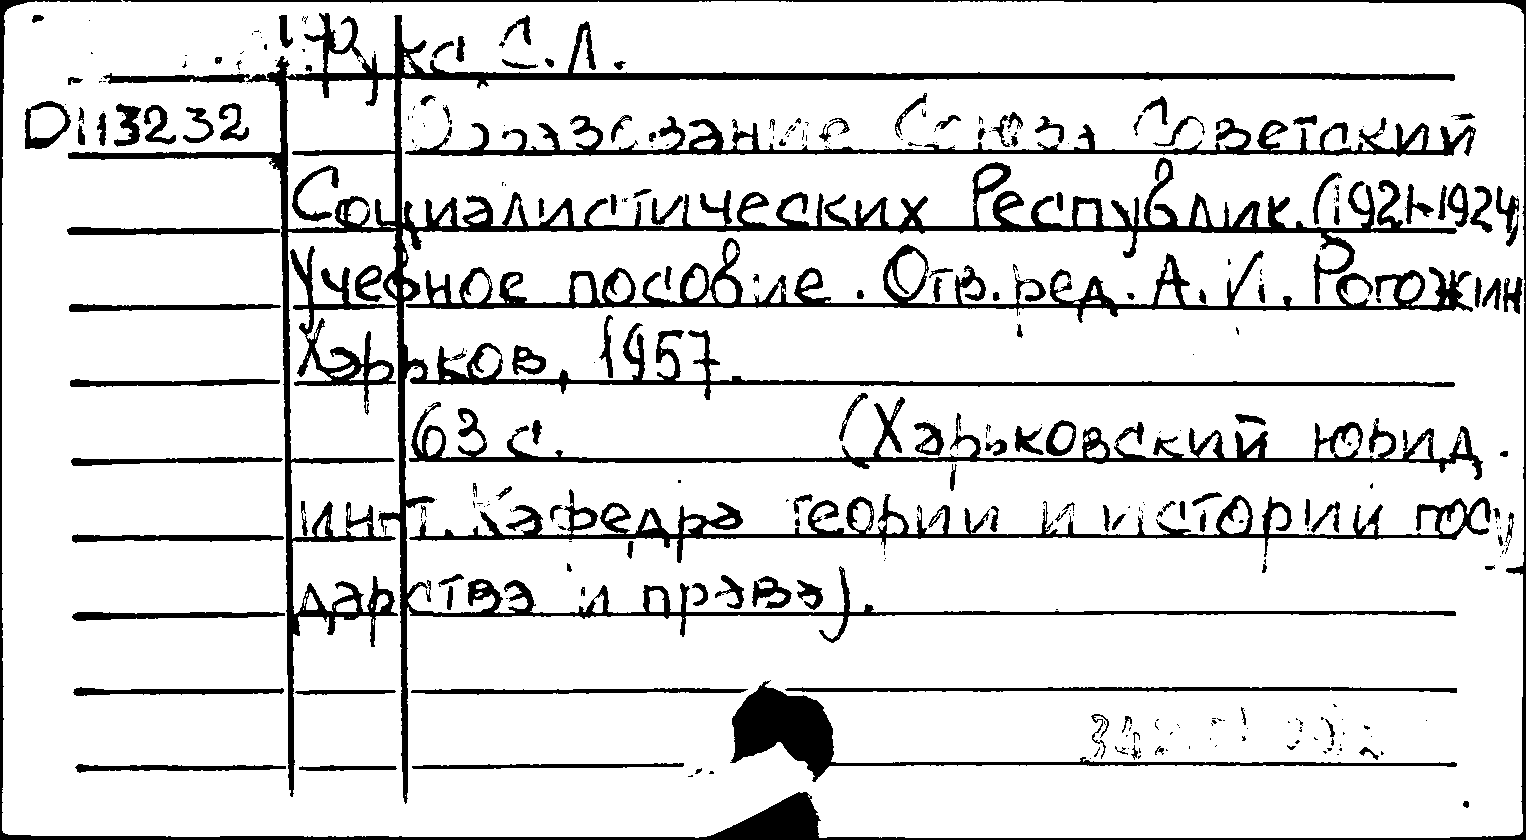 Фукс, С.Л.
D113232 Образование Союза Советский
Социалистических Республик. (1921-1924)
Учебное пособие. Отв. ред. А. И. Рогожин
Харьков, 1957.
63 с. (Харьковский юрид.
ин-т. Кафедра теории и истории госу-
дарства и права).